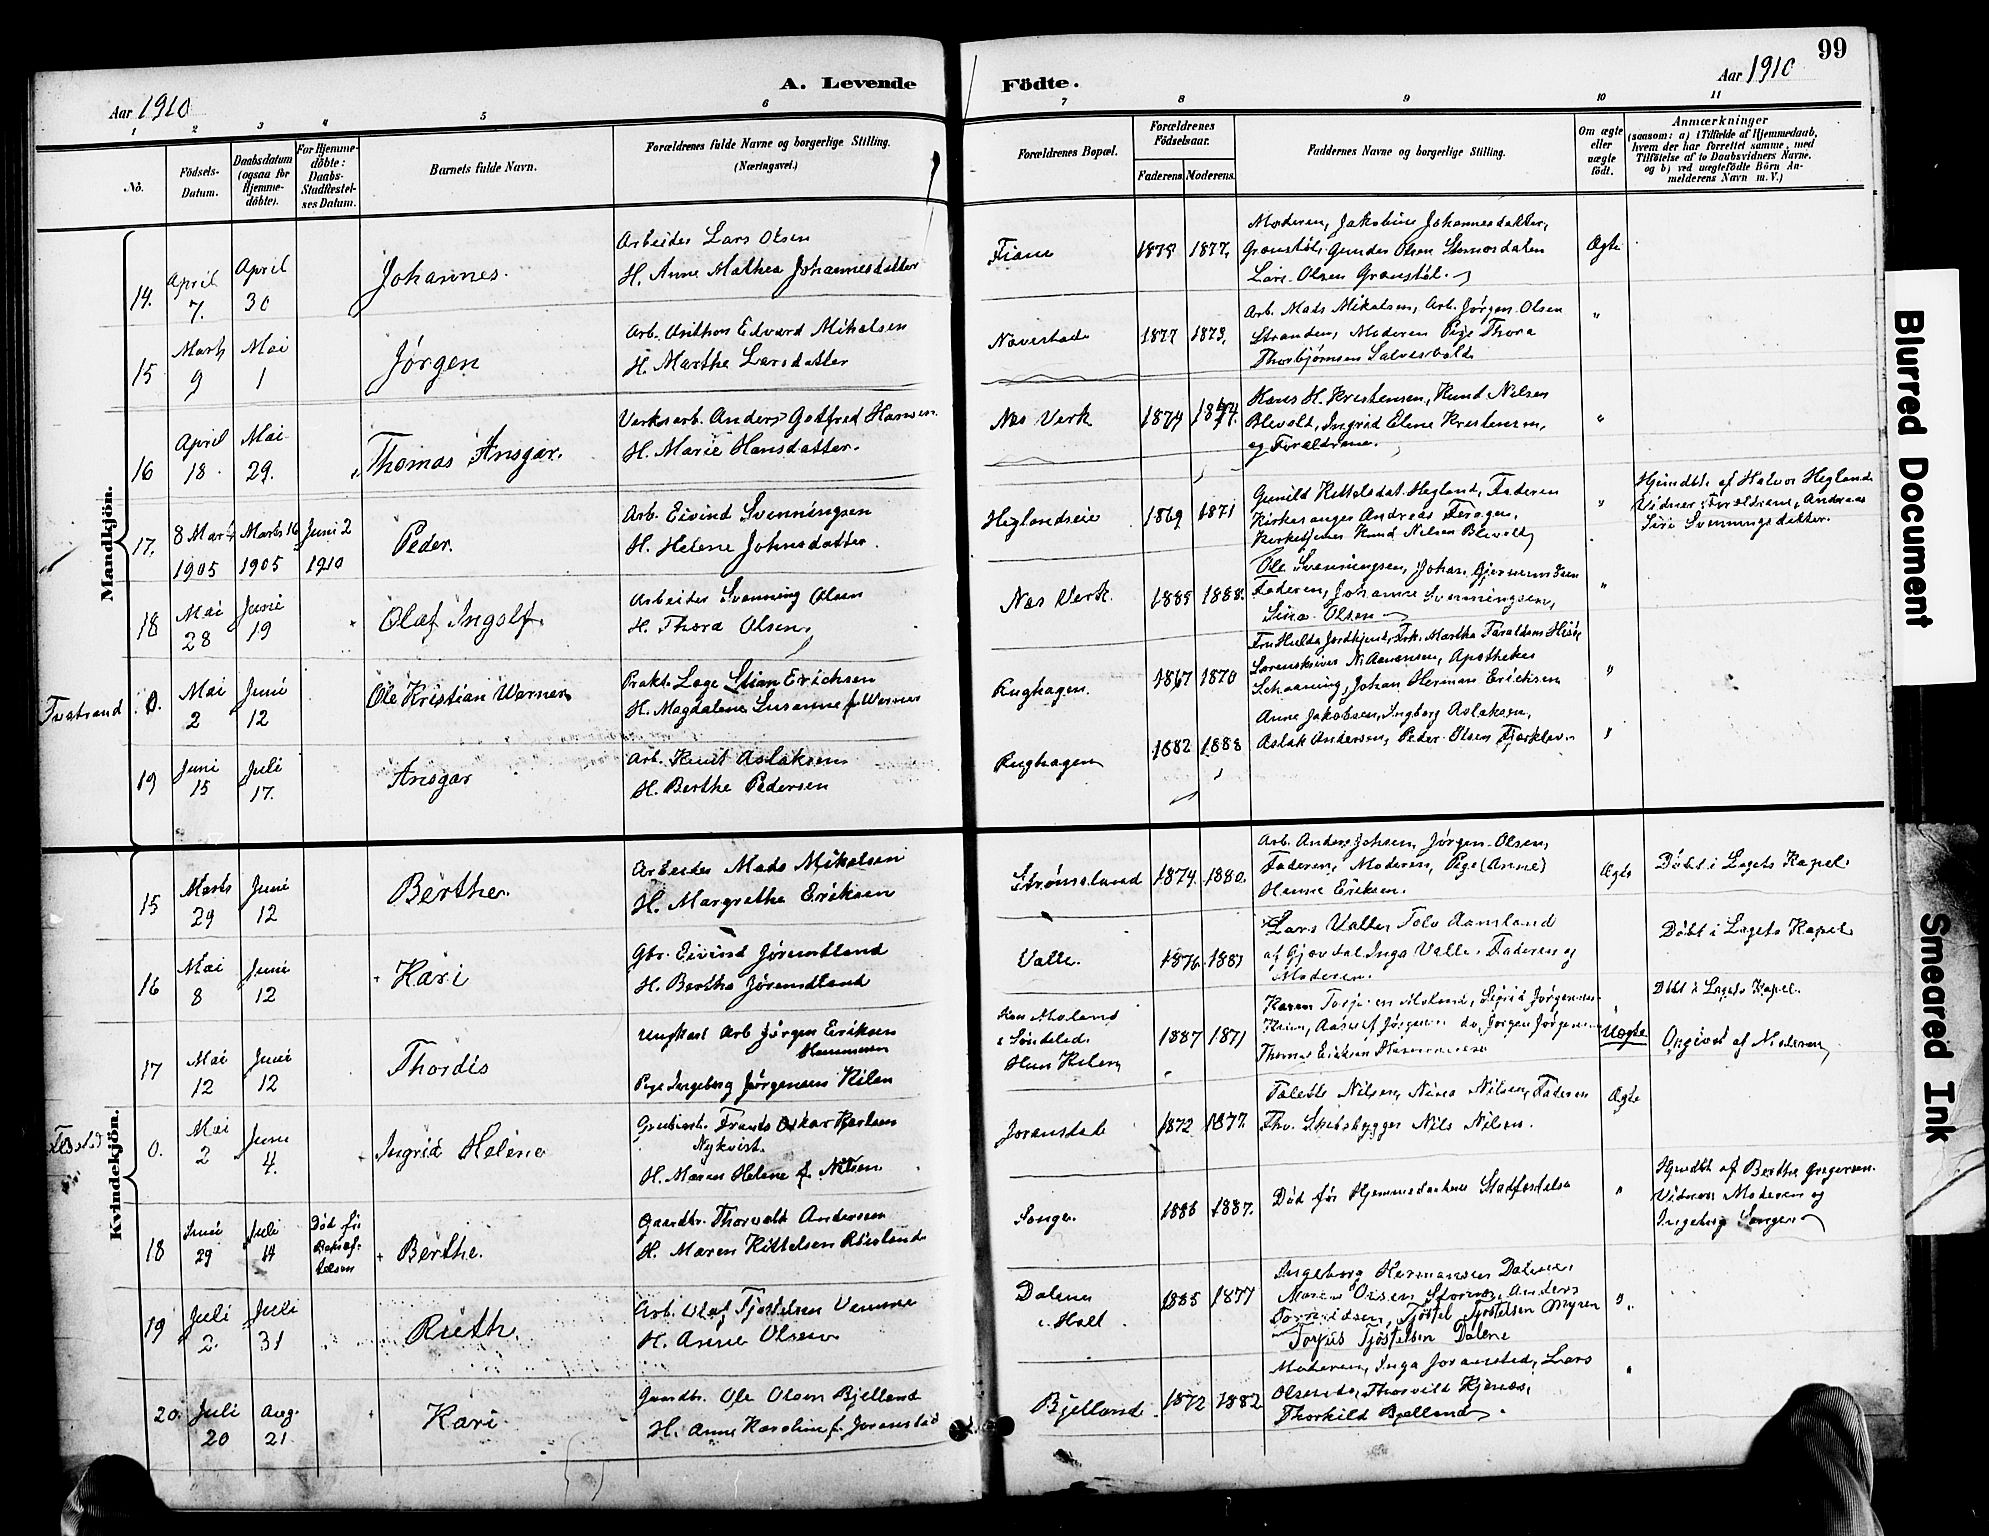 99
A. Levende Födte.
Aar 1910
Aar 1910
1 2 3 4 5 6 7 8 9 10 11
No.
Födsels-Datum.
Daabsdatum (ogsaa for Hjemme-döbte).
For Hjemme-döbte: Daabs-Stadfæstel-ses Datum.
Barnets fulde Navn.
Forældrenes fulde Navne og borgerlige Stilling.
(Næringsvei.)
Forældrenes Bopæl.
Forældrenes Födselsaar.
Faderens. Moderens.
Faddernes Navne og borgerlige Stilling.
Om ægte eller uægte födt.
Anmærkninger
(saasom: a) i Tilfælde af Hjemmedaab,
hvem der har forrettet samme, med
Tilföielse af to Daabsvidners Navne,
og b) ved uægtefödte Börn An-
melderens Navn m. V.)
Mandkjön.
14. April 7. April 30 Johannes.
Arbeider Lars Olsen
H. Anne Mathea Johannesdatter
Fiane 1875 1877.
Moderen, Jakobine Johannesdatter,
Granstöl. Gunder Olsen
Lars Olsen Granstöl.
Ægte
15 Marts 9 Mai 1 Jørgen
Arb. Anthon Edvard Mikalsen
H. Marthe Larsdatter
Næverstad 1877 1873.
Arb. Mads Mikalsen, Arb. Jørgen Olsen
Stranden, Moderen Pige Thora
Thorbjørnsen
"
16 April 18. Mai 29. Thomas Ansgar.
Verksarb. Anders Gotfred Hansen
H. Marie Hansdatter.
Næs Verk 1874
Hans H. Kristensen, Knud Nilsen
Blevolt, Ingrid Elene Kristensen,
og Forældrene.
"
17. 8 1905 Marts 16 1905 Juni 2 1910 Peder.
Arb. Eivind Svenningsen
H. Helene Johnsdatter.
Heglandseie 1869 1871
Gunild Kittelsdat. Hegland, Faderen
Kirkesanger Andreas
Kirketjener Knud Nilsen Blevolt
"
Hjemdbt. af Halvor Hegland
Vidner: Forældrene, Andreas
Siri Svenningsdatter.
18 Mai 28 Juni 19 Olaf Ingolf.
Arbeider Svenning Olsen
H. Thora Olsen.
Næs Verk. 1885 1888.
Ole Svenningsen, Johan
Faderen, Johanne Svenningsen,
Sina Olsen
"
Tvetrand 0. Mai 2 Juni 12 Ole Kristian Werner
Prakt. Læge Stian Erichsen
H. Magdalene Susanne f. Werner
Rughagen. 1867 1870
Fru Hulda Marthe
Sorenskriver N. Apotheker
Schaaning, Johan Herman Erichsen
"
19 Juni 15 Juli 17. Ansgar
Arb. Knut Aslaksen
H. Berthe Pedersen
Rughagen 1882 1888
Anne Jakobsen, Ingborg Aslaksen,
Aslak Andersen, Peder Olsen
"
Kvindekjön.
15 Marts 29 Juni 12 Berthe.
Arbeider Mads Mikalsen
H. Margrethe Eriksen
Strømsland 1874. 1880.
Arb. Anders Johsen, Jørgen Olsen,
Faderen, Moderen, Pige (Anne)
Hanne Eriksen.
Ægte
Døbt i Lagets Kapel
16 Mai 8 Juni 12 Kari
Gbr. Eivind Jørundland
H. Berthe Jørundland
Valle. 1876. 1881
Lars Valle, Aamland
af Gjøvdal. Inga Valle. Faderen og
Moderen.
Døbt i Lagets Kapel
17 Mai 12 Juni 12 Thordis
Ungkarl Arb Jørgen Eriksen
Pige Ingeborg Jørgensen Kilen
Moland
i Søndeled.
Hun Kilen 1887 1871
Karen Moland, Sigrid Jørgensen
Kilen, Jørgen Jørgensen
Thomas Eriksen
Uægte
Døbt i Lagets Kapel.
Opgivet af Moderen
0. Mai 2 Juni 4. Ingrid Helene
Frants Oskar Karlsen
Nykvist.
H. Maren Helene f. Nilsen
Joranstad 1872 1877.
Nilsen, Nina Nilsen, Faderen
Thv. Skibsbygger Nils Nilsen.
Ægte
18 Juni 29 Juli 14 Død før Berthe.
Gaardbr. Thorvalt Andersen
H. Maren Kittelsen
Songe. 1886 1887.
Død før Hjemmedaabens Stadfæstelse
"
Hjemdbt af Berthe Gregersen.
Vidner Moderen og
Ingeborg Songe
19 Juli 2. Juli 31 Ruth.
Arb. Olaf Tjøstelsen
H. Anne Olsen
Dalene
i Holt. 1885 1877
Ingeborg Hermansen Dalene,
Olsen Anders
Tjøstel Tjøstelsen Myren
Torjus Tjøstelsen Dalene
"
20. Juli 20 Aug. 21. Kari.
Gaardbr. Ole Olsen Bjelland
H. Anne Karoline f. Joranstad
Bjelland. 1872 1882
Moderen, Inga Joranstad, Lars
Olsen, Thorvild
Thorkild Bjelland.
"
Blurred Document
Smeared Ink